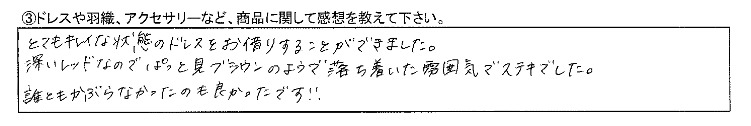 ③ドレスや羽織、アクセサリーなど、商品に関して感想を教えて下さい。
とてもキレイな状態のドレスをお借りすることができました。
深いレッドなのでぱっと見ブラウンのようで落ち着いた雰囲気でステキでした。
誰ともかぶらなかったのも良かったです!!